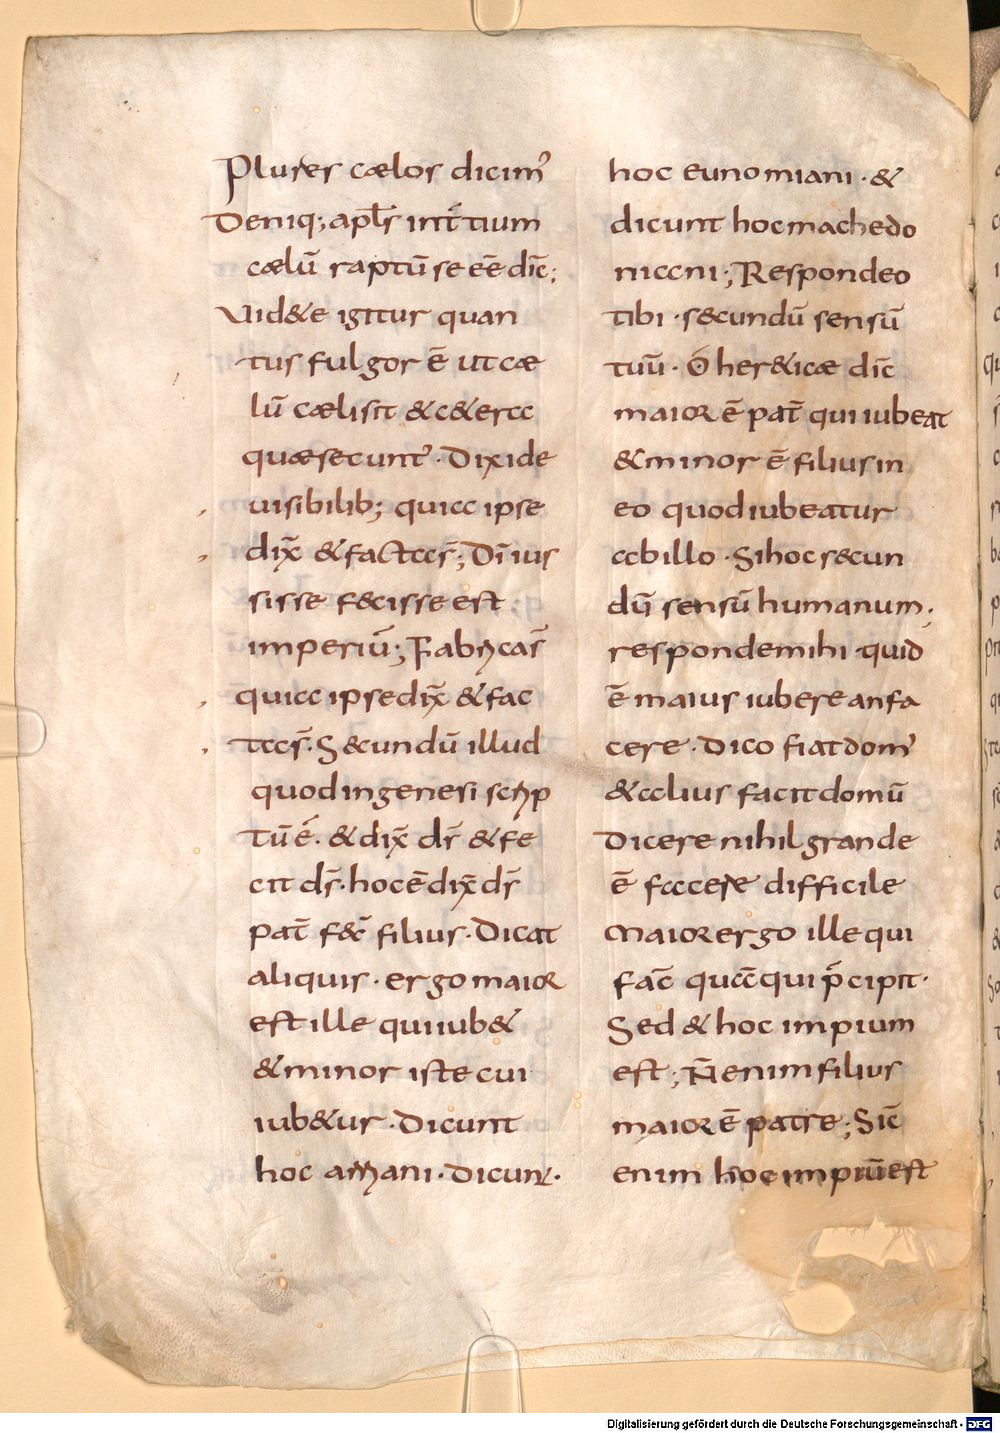 Plures cælos dicim᾿
Deniq; apl̅s int̅ tium
cælū raptū se eē dic̅;
Uid&e igitur quan
tus fulgor ē ut cæ
lū cæli sit & c&era
quæ secunt᾿. Dixi de
uisibilib; quia ipse
dix̅ & facta s̅; Di iüs
sisse fecisse est
imperiū; Fabricas̅
quia ipse dix̅ & fac
ta s̅. Secundū illud
quod in genesi scrip
tū ē. & dix̅ ds̅ & fe
cit ds̅. hoc ē dix̅ ds̅
pat̅ fec̅ filius. Dicat
aliquis. ergo maior
est ille qui iub&
& minor iste cui
iub&ur. Dicunt
hoc arriani. dicunt.
hoc eunomiani. &
dicunt hoc machedo
niani; Respondeo
tibi. secundū sensū
tuū. O her&icæ dic̅
maior ē pat̅ qui iubeat
& minor ē filius in
eo quod iubeatur
ab illo. Si hoc secun
dū sensū humanum.
responde mihi quid
ē maius iubere an fa
cere. Dico fiat dom᾿
& alius facit domū
Dicere nihil grande
ē facere difficile
Maior ergo ille qui
fac̅ quā qui p̅cipit.
Sed & hoc impium
est; N̅ enim filius
maior ē patre; Sic̅
enim hoc impiū est
Digitalisierung gefördert durch die Deutsche Forschungsgemeinschaft - DFG